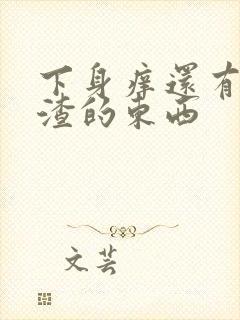 下身痒還有
渣的東西
文芸